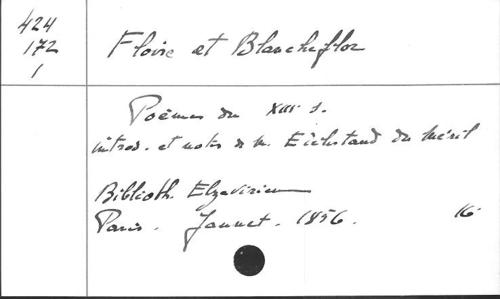 424
172
1
Floire et Blancheflor
Poèmes du XIII s.
introd. et notes de M. Edelstand du Méril
Biblioth. Elzevirienne
Paris. Jannet. 1856. 16